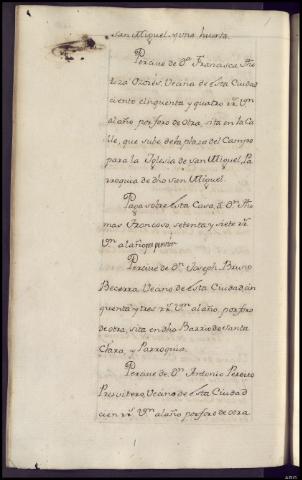 san Miguel, y una huerta.
Percive de Dª Francisca
Ozores, Vecina de esta Ciudad
ciento cinquenta y quatro rˢ vⁿ
al año, por foro de otra, sita en la Ca
lle, que sube de la plaza del Campo
para la Iglesia de san Miguel, Pa
rroquia de dho san Miguel.
Paga sobre esta Casa, á Dⁿ Tho
mas Troncoso, setenta y siete rˢ
Vⁿ al año
Percive de Dⁿ Joseph Bruno
Becerra Vecino de esta Ciudad, cin
quenta y tres rˢ Vⁿ al año, por foro
de otra, sita en dho Barrio de santa
Clara, y Parroquia.
Percive de Dⁿ Antonio Pereiro
Presvitero, Vecino de esta Ciudad
cien rˢ Vⁿ al año por foro de otra